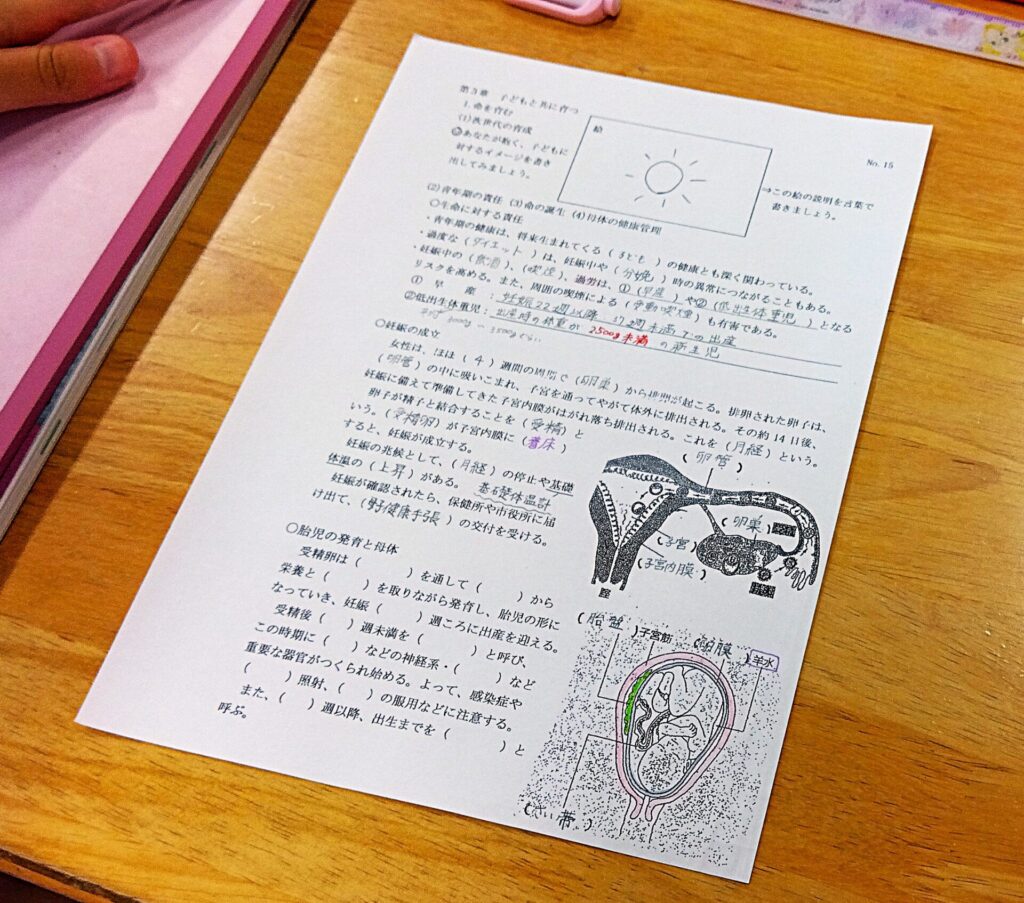 No. 15
第3章 子どもと共に育つ
1. 命を育む
(1) 次世代の育成
◎あなたが抱く、子どもに
対するイメージを書き
出してみましょう。
絵
⇒この絵の説明を言葉で
書きましょう。
(2) 青年期の責任 (3) 命の誕生 (4) 母体の健康管理
○生命に対する責任
・青年期の健康は、将来生まれてくる(子ども)の健康とも深く関わっている。
・過度な(ダイエット)は、妊娠中や(分娩)時の異常につながることもある。
・妊娠中の(飲酒)、(喫煙)、過労は、①(早産)や②(低出生体重児)となる
リスクを高める。また、周囲の喫煙による(受動喫煙)も有害である。
① 早産：妊娠22週以降37週未満での出産
②低出生体重児：出産時の体重が2500g未満の新生児
3000g〜3500gぐらい
○妊娠の成立
女性は、ほぼ(4)週間の周期で(卵巣)から排卵が起こる。排卵された卵子は、
(卵管)の中に吸いこまれ、子宮を通ってやがて体外に排出される。その約14日後、
妊娠に備えて準備してきた子宮内膜がはがれ落ち排出される。これを(月経)という。
卵子が精子と結合することを(受精)と
いう。(受精卵)が子宮内膜に(着床)
すると、妊娠が成立する。
妊娠の兆候として、(月経)の停止や基礎
体温の(上昇)がある。 基礎体温計
妊娠が確認されたら、保健所や市役所に届
け出て、(母子健康手帳)の交付を受ける。
(卵管)
(卵巣)
(子宮)
(子宮内膜)
腟
○胎児の発育と母体
受精卵は( )を通して( )から
栄養と( )を取りながら発育し、胎児の形に
なっていき、妊娠( )週ころに出産を迎える。
受精後( )週未満を( )と呼び、
この時期に( )などの神経系・( )など
重要な器官がつくられ始める。よって、感染症や
( )照射、( )の服用などに注意する。
また、( )週以降、出生までを( )と
呼ぶ。
(胎盤)
子宮筋
(卵膜)
羊水
(さい帯)